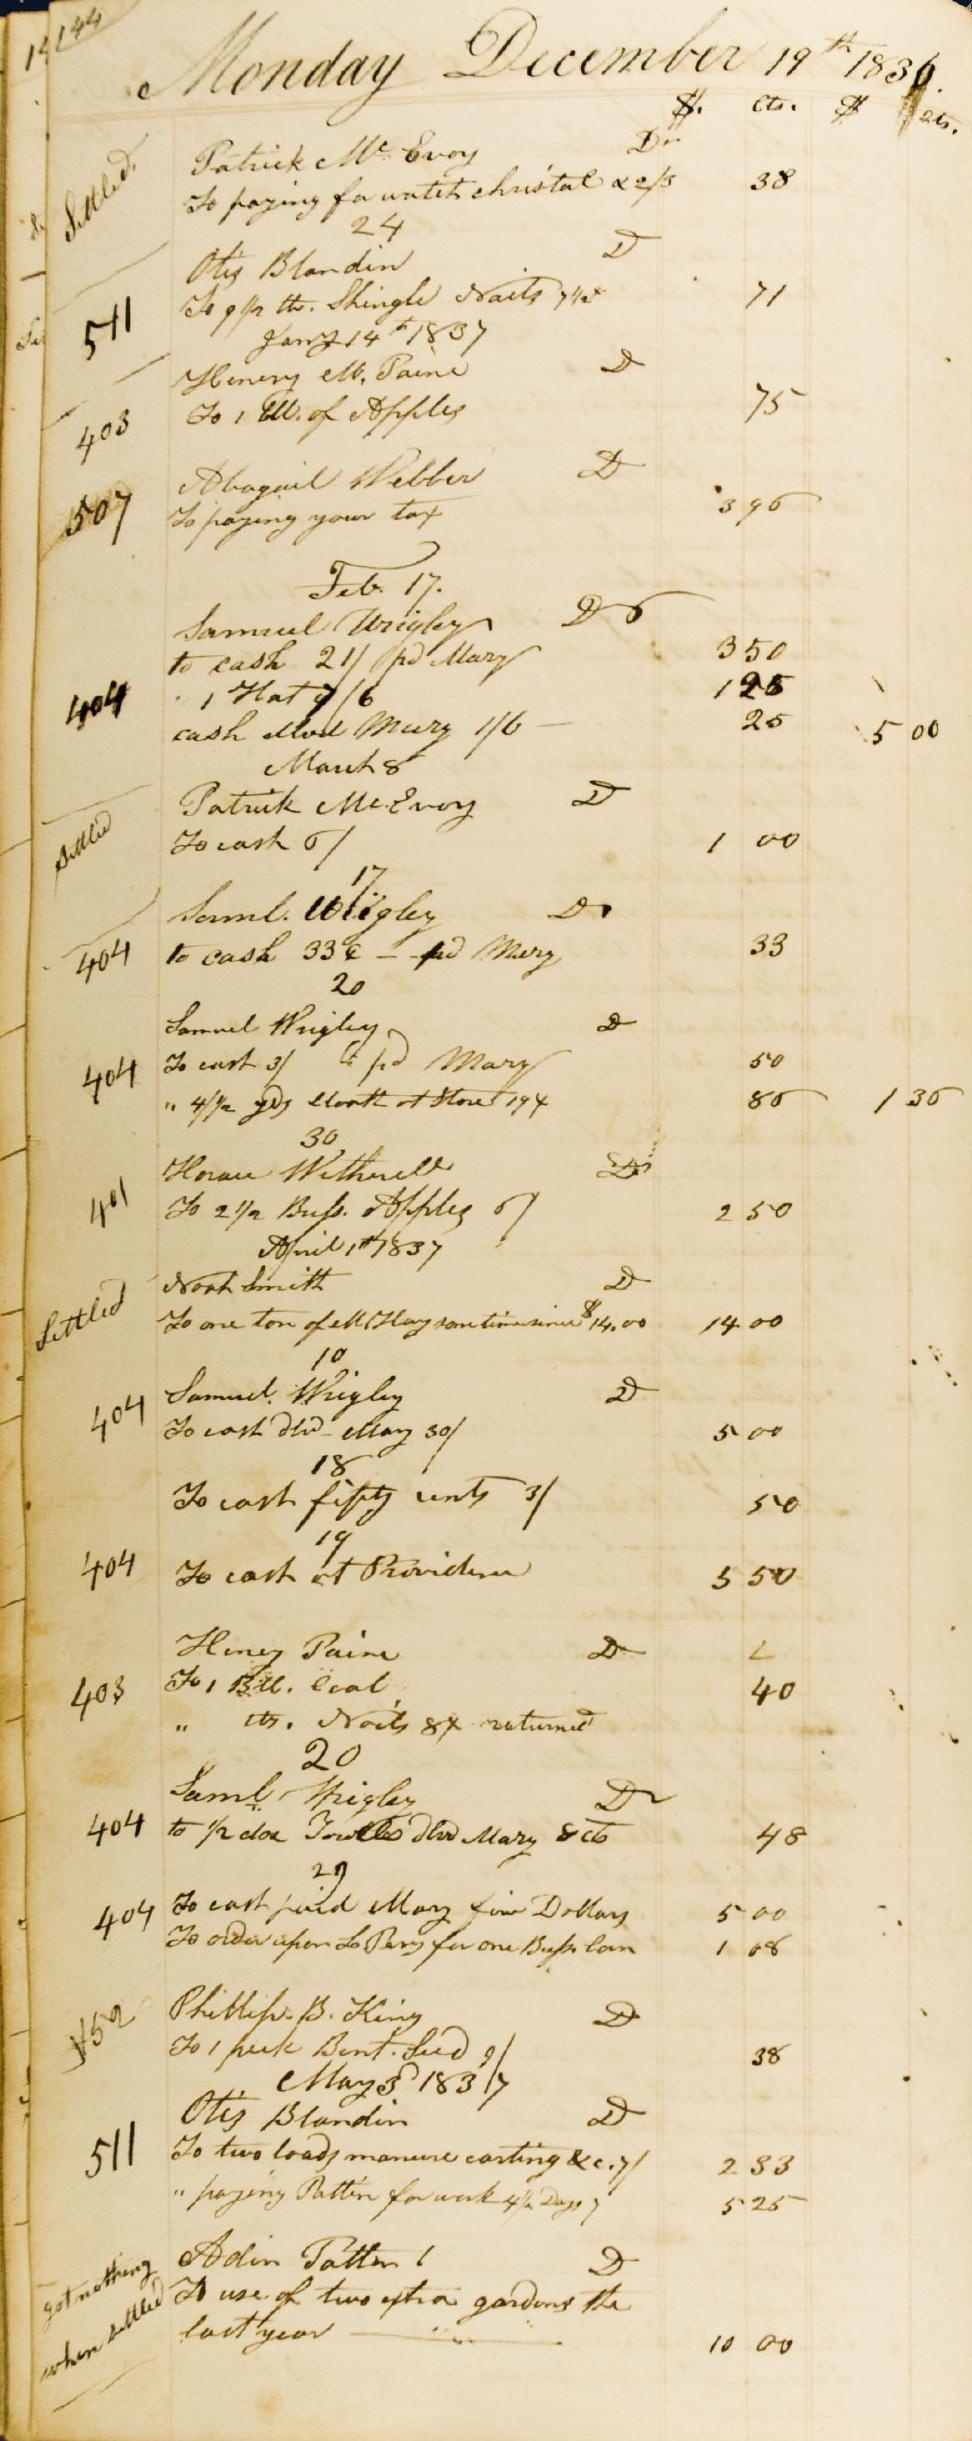 144
Monday December 19th 1836.
$. cts. $ cts.
Settled. Patrick Mc Evoy Dr
To paying for watch christal &c /3 38
24
Otis Blandin D
511 To 9 1/2 lb. Shingle Nails 7 1/2 71
Jany 14th 1837
Henery M. Paine D
403 To 1 Bll. of Apples 75
Abagail Webber D
507 To paying your tax 3 96
Feb. 17.
Samuel Wrigley Dr
to cash 21/ pd Mary 3 50
404 " 1 Hat 7/6 1 25
cash dlvd Mary 1/6 — 25 5 00
March 8
Patrick Mc Evoy D
Settled To cash 6/ 1 00
17
Saml. Wrigley Dr
404 to cash 33 c — pd Mary 33
20
Samuel Wrigley D
404 To cash 3/ pd Mary 50
" 4 1/2 yds Cloth at Store 86 1 36
30
Horace Witherell Dr
401 To 2 1/2 Bush. Apples 6/ 2 50
April 1st 1837
Noah Smith D
Settled To one ton of M Hay sometime since $14.00 14 00
10
404 Samuel Wrigley D
To cash dlvd Mary 30/ 5 00
18
To cash fifty cents 3/ 50
19
404 To cash at Providence 5 50
Heney Paine D
403 To 1 Bll. Coal 40
" lb. Nails 8 returned
20
Saml Wrigley Dr
404 to 1/2 doz Towels dlvd Mary 8 cts 48
29
404 To cash paid Mary five Dollars 5 00
To order upon L Pery for one Bush corn 1 08
Phillip. B. King D
452 To 1 peck Bent. Seed 9/ 38
May 3d 1837
Otis Blandin D
511 To two loads manure carting &c. 7/ 2 33
" paying Pattin for work 4 1/2 Days 7 5 25
Adin Patten 1 D
got nothing To use of two extra gardens the
when settled last year — 10 00